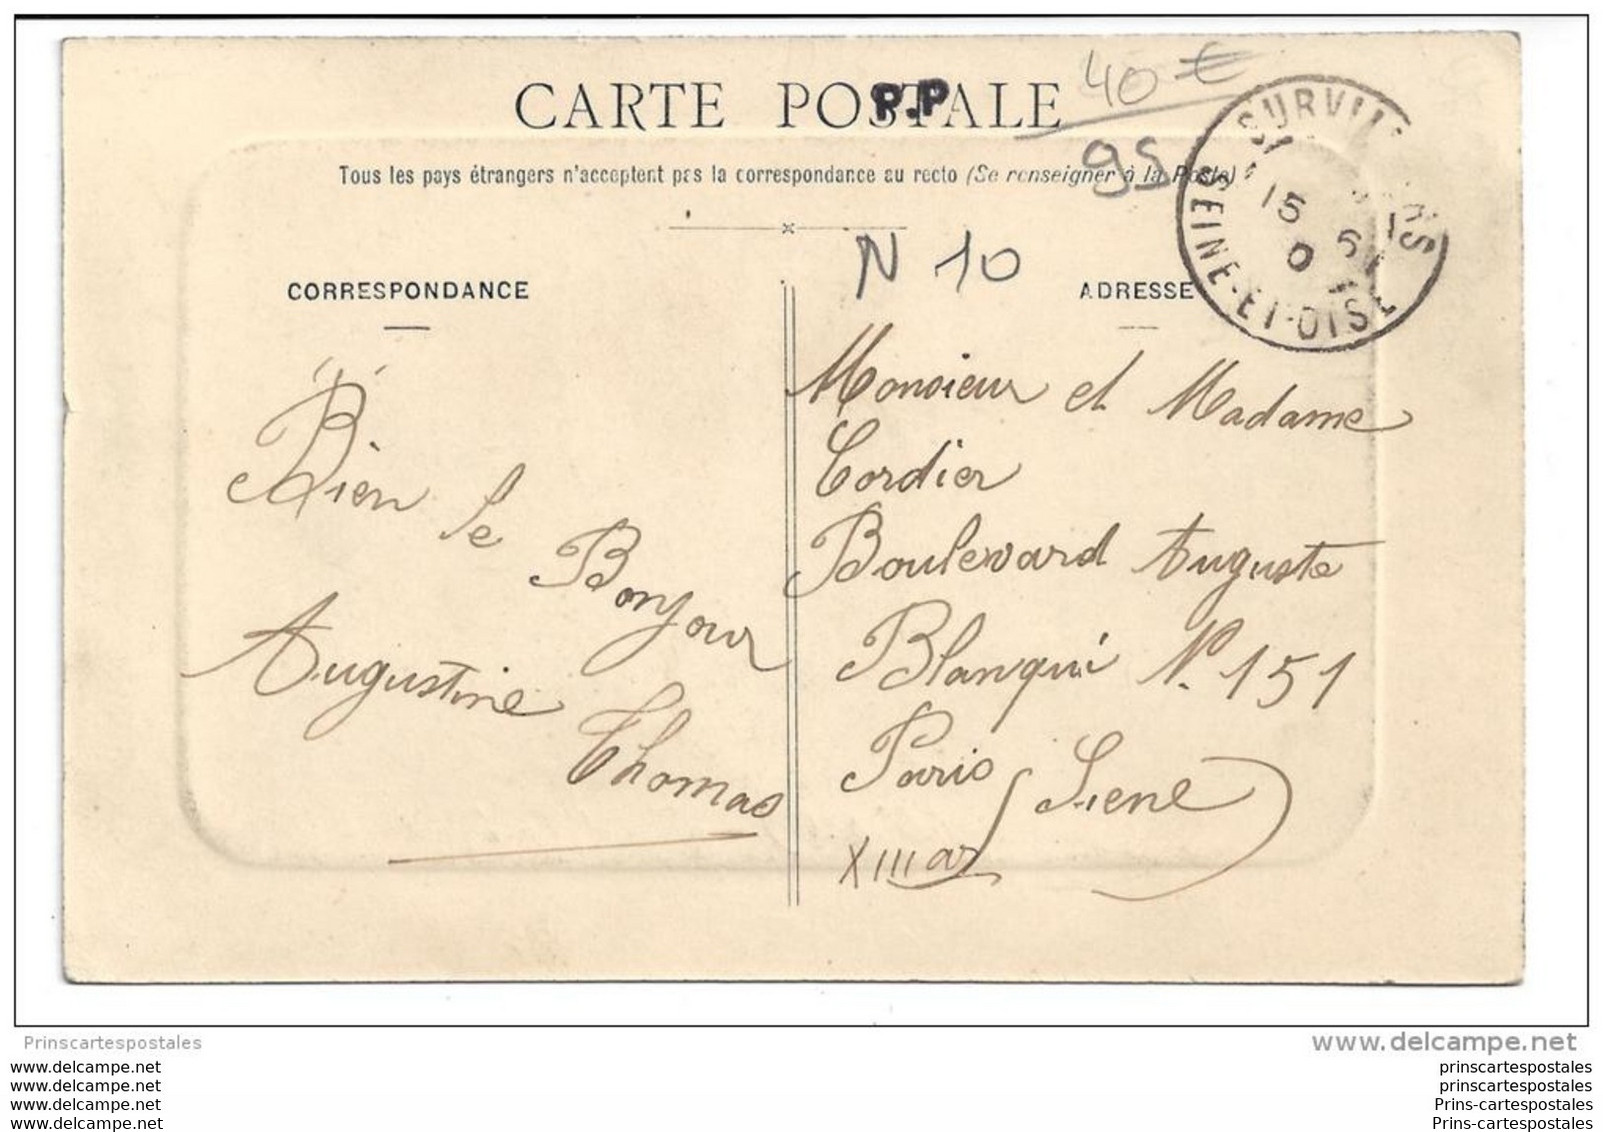 CARTE POSTALE
P.P
40 €
95
Tous les pays étrangers n'acceptent pas la correspondance au recto (Se renseigner à la Poste)
N 10
CORRESPONDANCE
ADRESSE
SURVIL
15 6
0
SEINE-ET-OISE
Bien le Bonjour
Augustine
Thomas
Monsieur et Madame
Cordier
Boulevard Auguste
Blanqui N. 151
Paris Siene
XIII ar
Prinscartespostales
www.delcampe.net
www.delcampe.net
www.delcampe.net
www.delcampe.net
www.delcampe.net
prinscartespostales
prinscartespostales
Prins-cartespostales
Prins-cartespostales